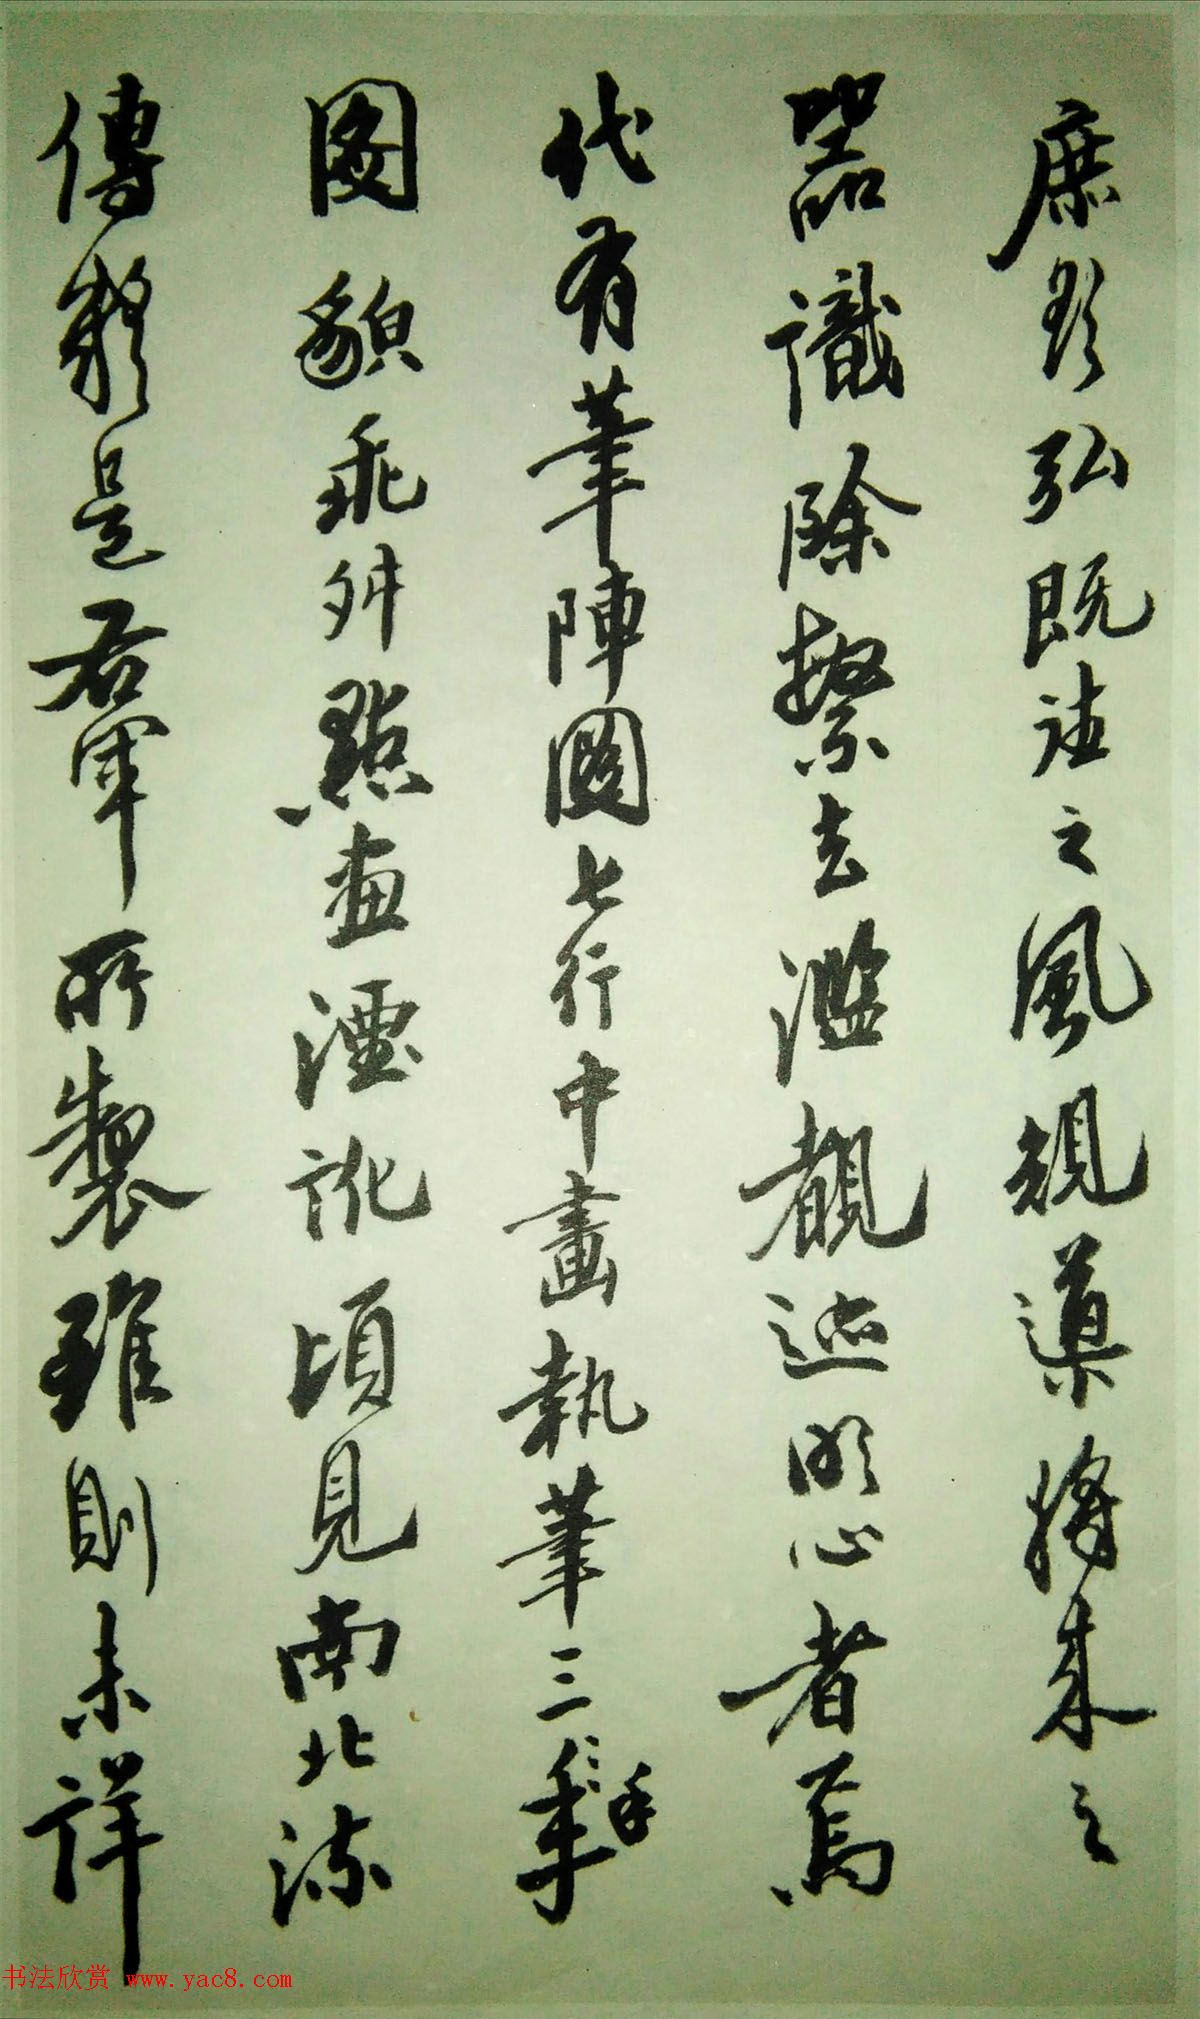 庶欲弘既往之風規導将来之
器識除繁去濫覩迹明心者焉
代有筆陣圖七行中畫執筆三手
圖貌乖舛點畫湮訛頃見南北流
傳疑是右軍所製雖則未詳
书法欣赏 www.yac8.com